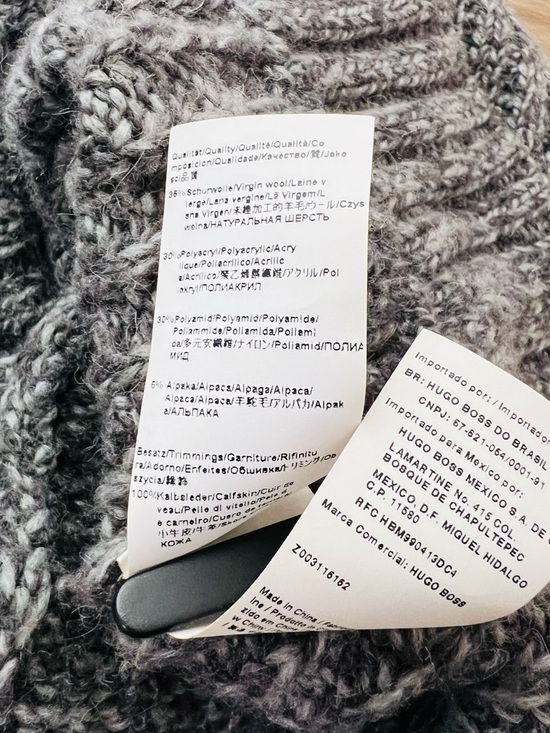 Qualität/Quality/Qualité/Qualità/Co
mposicion/Qualidade/Качество/質/Jako
sci/品質
35%Schurwolle/Virgin wool/Laine v
ierge/Lana vergine/Lã Virgem/L
ana Virgen/未經加工的羊毛/ウール/Czys
wełna/НАТУРАЛЬНАЯ ШЕРСТЬ
30%Polyacryl/Polyacrylic/Acry
lique/Poliacrilico/Acrilic
a/Acrílico/聚乙烯氨纖維/アクリル/Pol
iakryl/ПОЛИАКРИЛ
30%Polyamid/Polyamide/Polyamide/
Poliammide/Poliamida/Poliami
da/多元安纖維/ナイロン/Poliamid/ПОЛИА
МИД
5%Alpaka/Alpaca/Alpaga/Alpaca/
Alpaca/Alpaca/羊駝毛/アルパカ/Alpak
a/АЛЬПАКА
Besatz/Trimmings/Garniture/Rifinitu
ra/Adorno/Enfeites/Обшивка/トリミング/Ob
szycia/緣飾
100%Kalbleder/Calfskin/Cuir de
veau/Pelle di vitello/Pele d
e carneiro/Cuero de
小牛皮/牛革/
КОЖА
Importado por: / Importado
BR: HUGO BOSS DO BRASIL
CNPJ: 57-521.054/0001-91
Importado para Mexico por:
HUGO BOSS MEXICO S.A. DE
LAMARTINE No. 415 COL.
BOSQUE DE CHAPULTEPEC
C.P. 11580
MEXICO, D.F. MIGUEL HIDALGO
RFC HBM990413DC4
Marca Comercial: HUGO BOSS
Z003116162
Made in China /
ine / Prodotto in
zido em China
w Chin